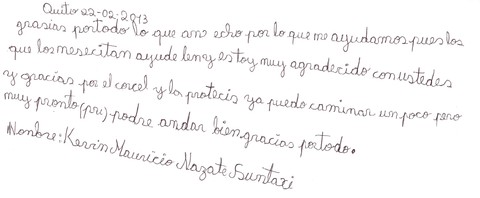 Quito 22-02-2013
grasias portodo lo que an echo por lo que me ayudamos pues los
que los mesecitan ayudelen y estoy muy agradecido con ustedes
y gracias por el corcel y la protecis ya puedo caminar un poco pero
muy pronto (pri) podre andar bien gracias portodo.
Nombre: Kevin Mauricio Nazate Suntaxi